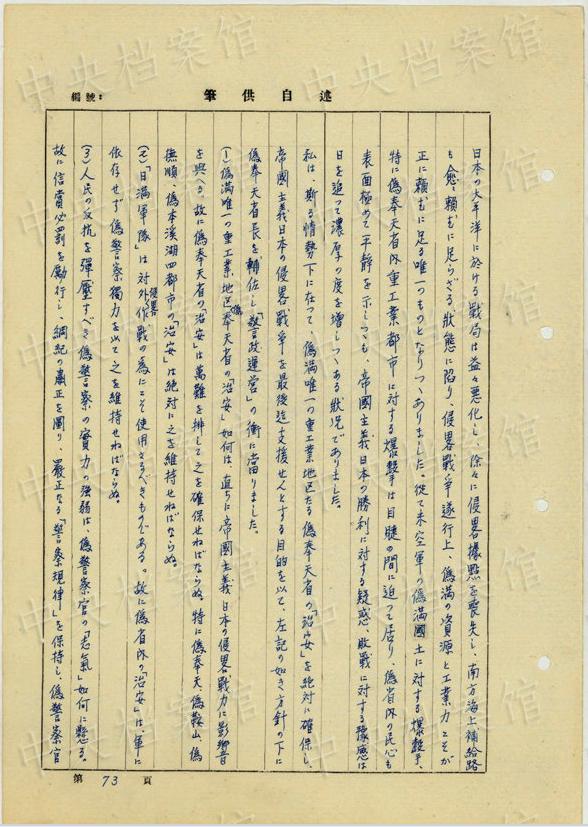 編號:
述自供筆
日本の太平洋に於ける戦局は益々悪化し、除々に侵略據點を喪失し、南方海上補給路
も愈々頼むに足らざる狀態に陷り、侵略戦争遂行上、偽満の資源と工業力こそが
正に頼むに足る唯一つものとなりつゝありました。從て米空軍の偽満國土に対する爆撃、
特に偽奉天省內重工業都市に対する爆撃は目睫の間に迫って居り、偽省內の民心も
表面極めて平静を示しつゝも、帝國主義日本の勝利に対する疑惑、敗戦に対する豫感は
日を追って濃厚の度を増しつゝある狀況でありました。
私は、斯る情勢下に在って、偽満唯一の重工業地区たる偽奉天省の「治安」を絶対に確保し、
帝國主義日本の侵略戦争を最後迄支援せんとする目的を以て、左記の如き方針の下に
偽奉天省長を輔佐し「警政運営」の衝に當りました。
(1) 偽満唯一の重工業地区偽奉天省の「治安」如何は、直ちに帝國主義日本の侵略戦力に影響
を與へる故に偽奉天省の「治安」は萬難を排して之を確保せねばならぬ、特に偽奉天、偽鞍山、偽
撫順、偽本溪湖四都市の「治安」は絶対に之を維持せねばならぬ。
(2)「日満軍隊」は対外侵略作戦の為にこそ使用さるべきものである。故に偽省內の「治安」は、軍に
依存せず偽警察獨力を以て之を維持せねばならぬ。
(3) 人民の反抗を彈壓すべき偽警察の實力の強弱は、偽警察官の「志氣」如何に懸る。
故に信賞必罰を勵行し、綱紀の肅正を圖り、嚴正なる「警察規律」を保持し、偽警察官
第 73 頁
中央档案馆